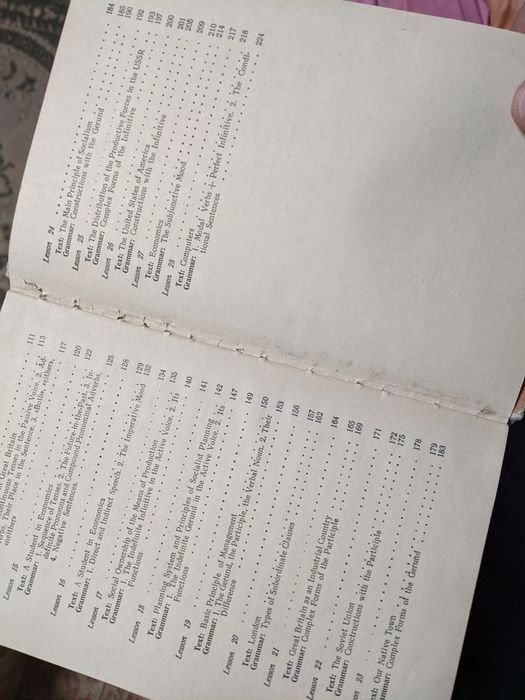 Great Britain . . . 111
Continuous Tenses in the Passive Voice. 2. Ad-
verbs. Their Place in the Sentence. 3. «Both», «either», 113
«neither»
Lesson 15 . . . 117
Text: A Student in Economics
Grammar: 1. Sequence of Tenses. 2. The Future-in-the-Past. 3. In- 120
definite Pronouns and Compound Pronominal Adverbs. 122
4. Negative Sentences.
Lesson 16 . . . 125
Text: A Student in Economics
Grammar: 1. Direct and Indirect Speech. 2. The Imperative Mood 128
Lesson 17 . . . 129
Text: Social Ownership of the Means of Production 132
Grammar: 1. The Indefinite Infinitive in the Active Voice. 2. Its 134
Functions . . . 135
Lesson 18 . . . 140
Text: Planning System and Principles of Socialist Planning 141
Grammar: 1. The Indefinite Gerund in the Active Voice. 2. Its 142
Functions . . . 147
Lesson 19 . . . 149
Text: Basic Principle of Management
Grammar: 1. The Gerund, the Participle, the Verbal Noun. 2. Their 150
Difference . . . 153
Lesson 20
Text: London . . . 156
Grammar: Types of Subordinate Clauses . . . 157
Lesson 21 . . . 162
Text: Great Britain as an Industrial Country 164
Grammar: Complex Forms of the Participle . . . 165
Lesson 22 . . . 169
Text: The Soviet Union
Grammar: Constructions with the Participle . . . 171
Lesson 23 . . . 172
Text: Our Native Town . . . 175
Grammar: Complex Forms of the Gerund . . . 178
179
183
Lesson 24 . . . 184
Text: The Main Principle of Socialism . . . 185
Grammar: Constructions with the Gerund . . . 190
Lesson 25 . . . 192
Text: The Distribution of the Productive Forces in the USSR 193
Grammar: Complex Forms of the Infinitive . . . 197
Lesson 26 . . . 200
Text: The United States of America . . . 201
Grammar: Constructions with the Infinitive . . . 205
Lesson 27 . . . 209
Text: Economics . . . 210
Grammar: The Subjunctive Mood . . . 214
Lesson 28 . . . 217
Text: Computers . . . 218
Grammar: 1. Modal Verbs + Perfect Infinitive. 2. The Condi-
tional Sentences . . . 224